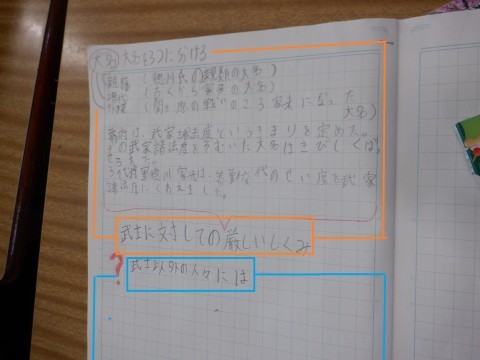 大名 大名を3つに分ける
親藩(徳川氏の親類の大名)
譜代(古くから家来の大名)
外様(関ヶ原の戦いのころ家来になった大名)
幕府は、武家諸法度というきまりを定めた。
その武家諸法度をそむいた大名はきびしくばっせられた。
3代将軍徳川家光は、参勤交代のせい度を武家
諸法度にくわえました。
武士に対しての厳しいしくみ
? 武士以外の人々には